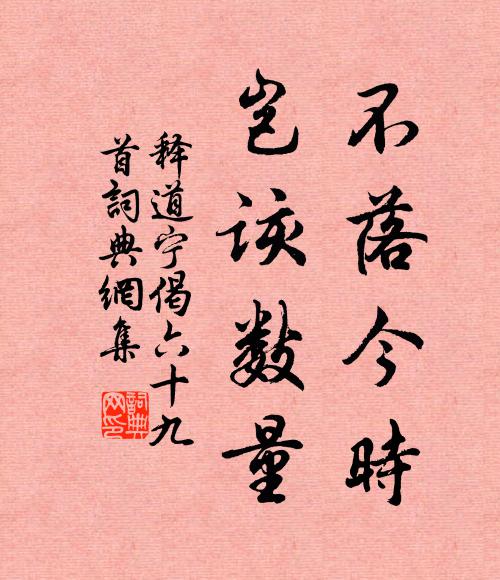 不落今時
豈該數量
释道宁偈六十九
首詞典網集
詞典
网印